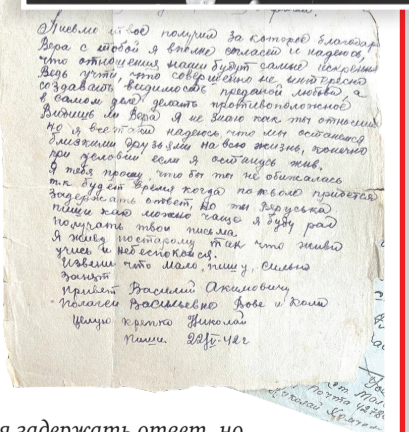 Письмо твое получил за которое благодар
Вера с тобой я вполне согласен и надеюсь,
что отношения наши будут самые искренн
Ведь учти, что совершенно не интересно
создавать видимость преданой любви, а
в самом деле делать противоположное
Видишь ли Вера я не знаю как ты относиш
но я все таки надеюсь, что мы останемся
близкими друзьями на всю жизнь, конечно
при условии если я останусь жив.
Я тебя прошу, что бы ты не обижалась
т.к. будет время когда поневоле придется
задержать ответ, но ты Веруська
пиши как можно чаще я буду рад
получать твои письма.
Я живу постарому так что живи
учись и небеспокойся.
Извени что мало, пишу, сильно
занят
Привет Василий Акимовичу
Пелагеи Васильевно Вове и Коли
Целую крепко Николай
Пиши. 22/IV-42г
Почта 4278
Николай
я задержать ответ, но